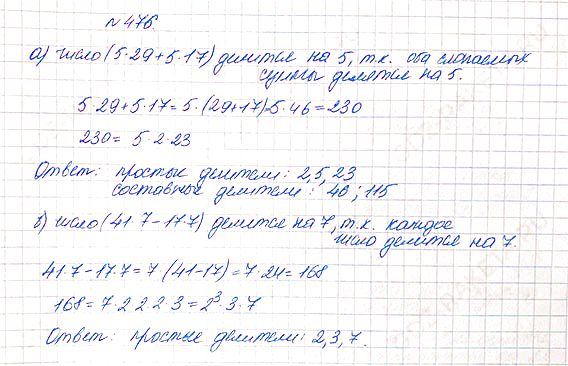 №476.
а) число (5·29+5·17) делится на 5, т.к. оба слагаемых
суммы делятся на 5.
5·29+5·17=5·(29+17)=5·46=230
230= 5·2·23
Ответ: простые делители: 2,5,23
составные делители: 46; 115
б) число (41·7-17·7) делится на 7, т.к. каждое
число делится на 7.
41·7-17·7=7(41-17)=7·24=168
168=7·2·2·2·3=2³·3·7
Ответ: простые делители: 2,3,7.